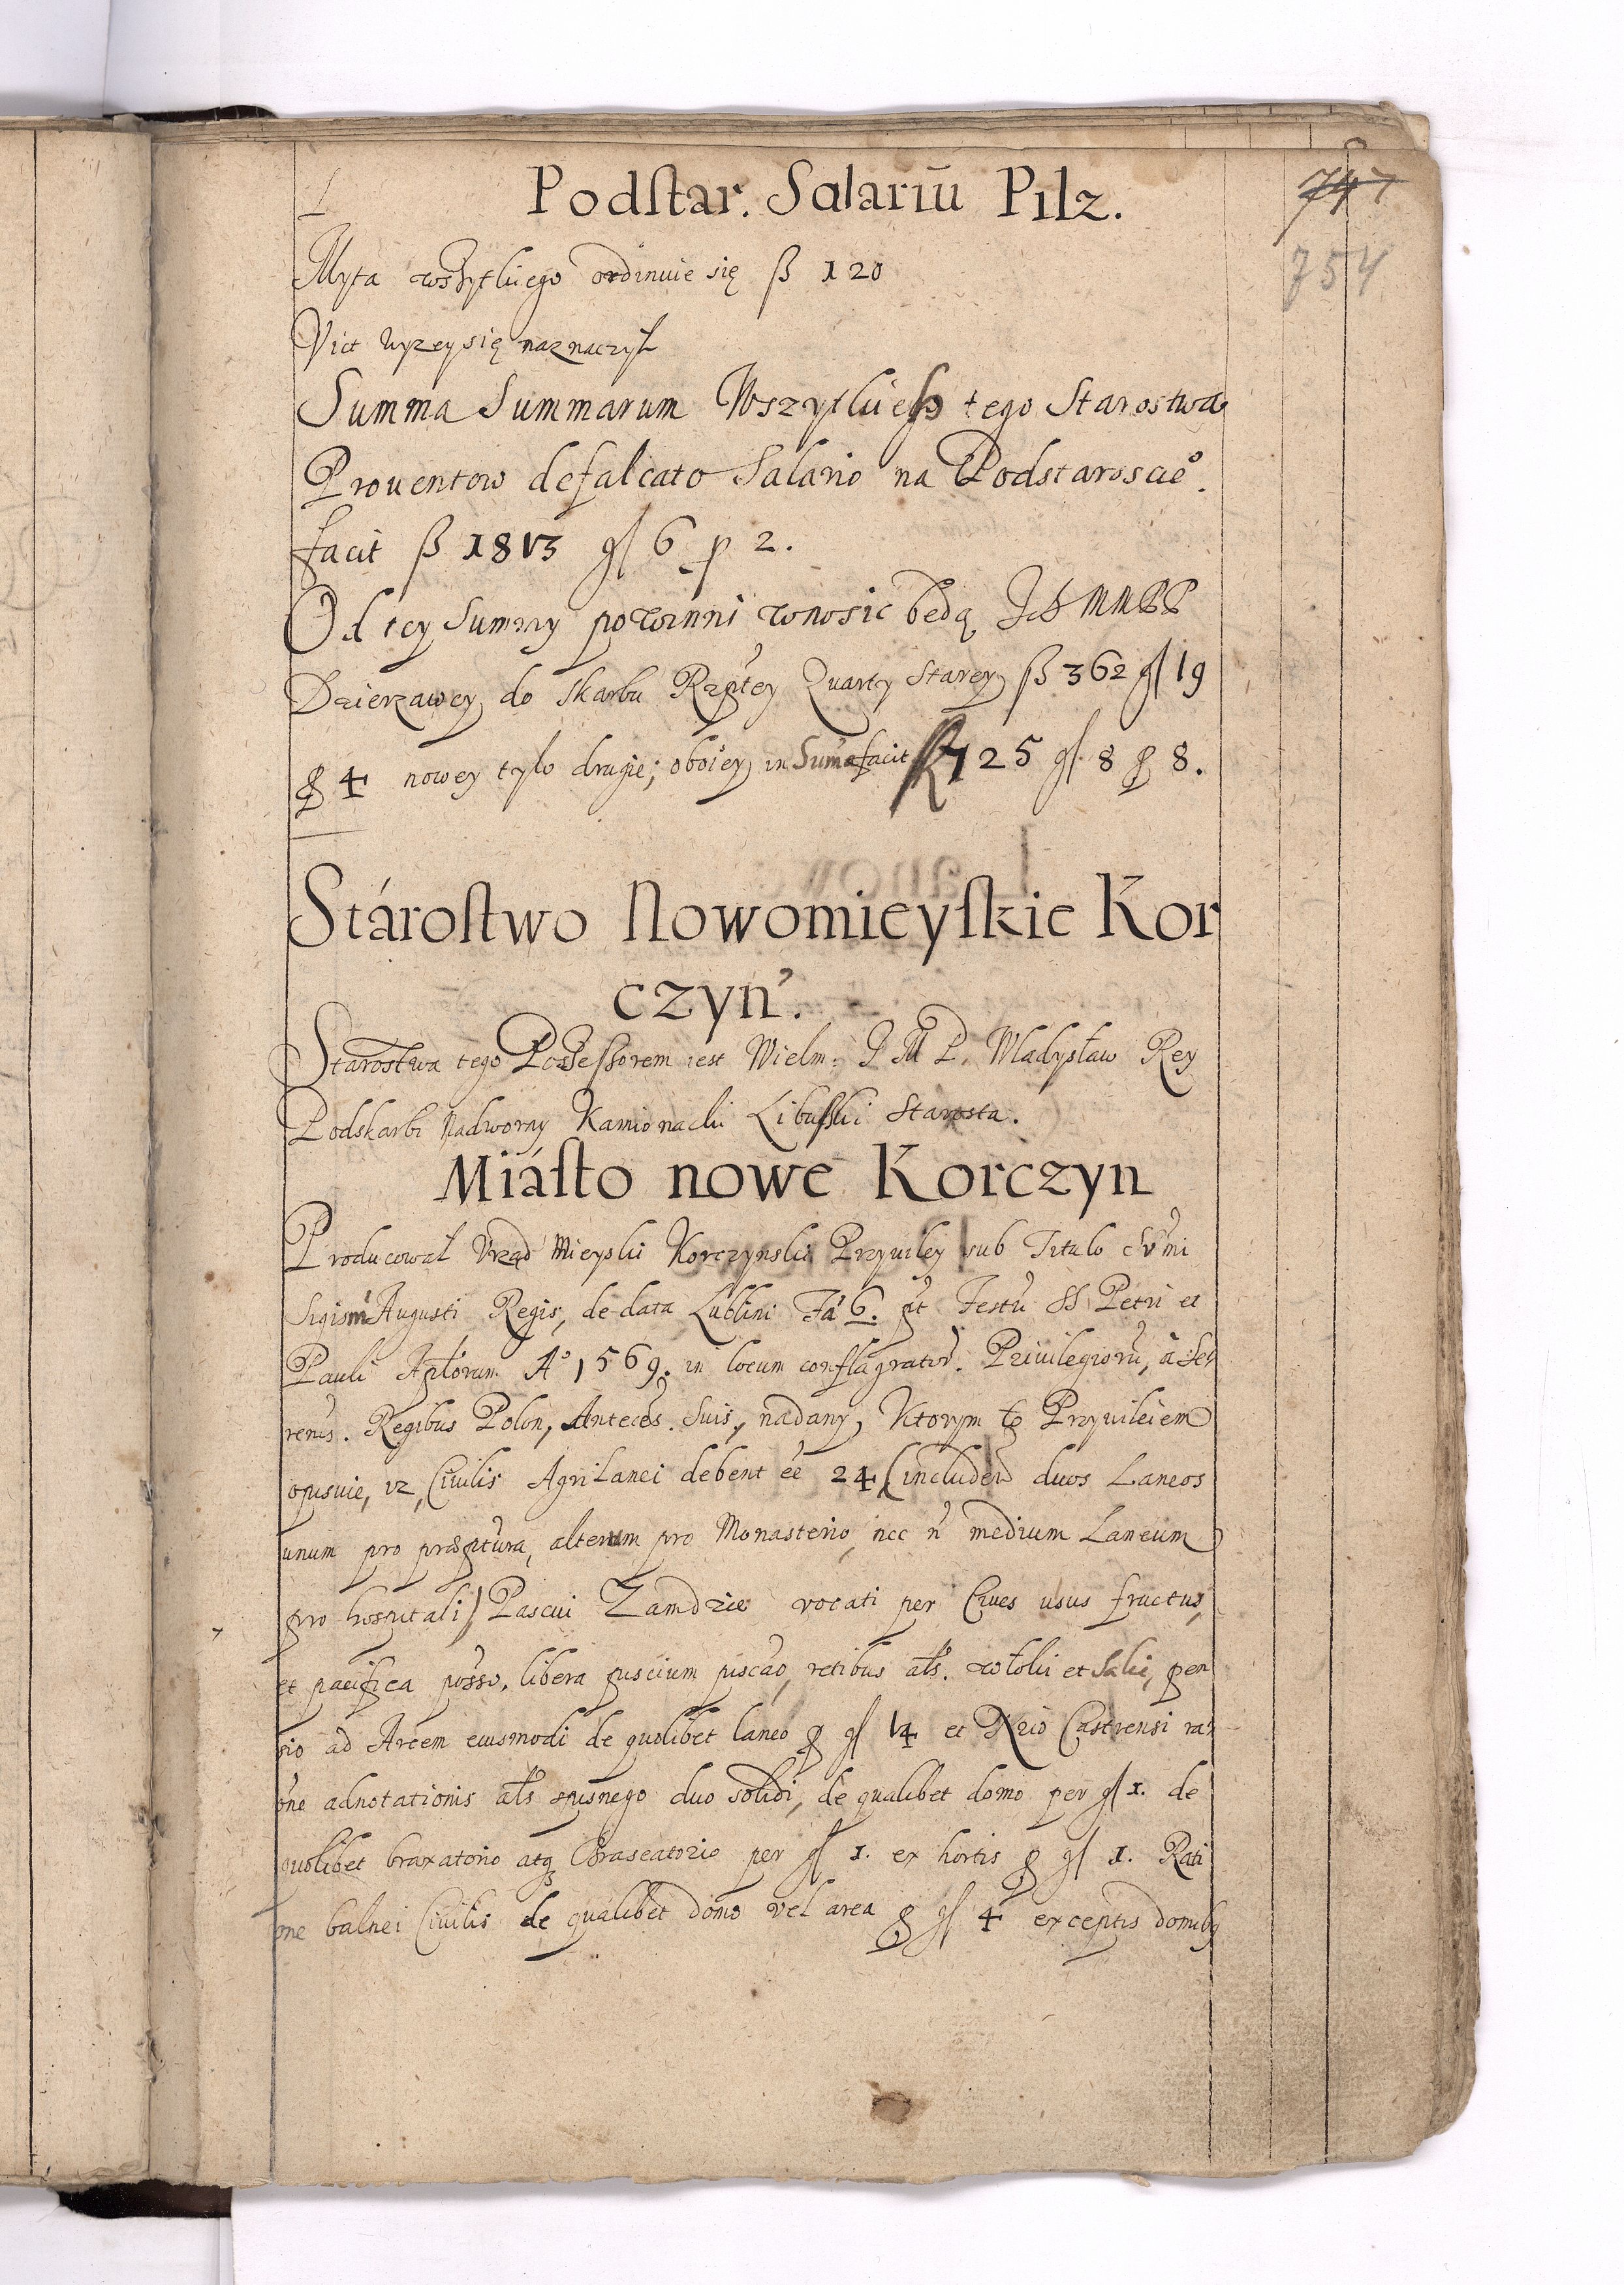 Podstar. Salariũ Pilz.
747
754
Myta wszytkiego ordinuie się ß 120
Vict wyzey się naznaczył
Summa Summarum Wszytkich tego Starostwa
Prouentow defalcato Salario na Podstarosciẽ.
facit ß 1813 gſ 6 ꝑ 2.
Od tey Summy powinni wnosic będą
Dzierzawcy do Skarbu Rzptey Quarty Starey ß 362 gſ 19
ꝑ 4 nowey tylo drugie; oboiey in Suma facit ß 725 gſ 8 ꝑ 8.
Stárostwo Nowomieyskie Kor
czyn.
Starostwa tego Possessorem iest Wielm: J M P. Wladysław Rey
Podskarbi Nadworny Kamionacki Libuski Starosta.
Miásto nowe Korczyn
Producował Vrząd Mieyski Korczynski Przyuiley sub Titulo
Sigism Augusti Regis, de data Lublini Fa 6. pt Festũ SS Petri et
Pauli Aplorum Aº 1569. in locum conflagrator. Priuilegiorũ, a Se
renis. Regibus Polon, Anteces. Suis, nadany, Ktorym to Przyuileiem
opisuie, vz, Ciuilis Agri Lanei debent eẽ 24 (includen duos Laneos
unum pro præptura, alterum pro Monasterio, nec ñ medium Laneum
pro hospitali) Pascui Zamdzie vocati per Ciues usus fructus,
et pacifica posso, libera piscium piscao, retibus als. wtoki et Saki, pen
sio ad Arcem eiusmodi de quolibet laneo ꝑ gſ 14 et Castrensi ra
one adnotationis als spisnego duo solidi, de qualibet domo per gſ 1. de
quolibet braxatorio atq Braseatorio per gſ 1. ex hortis ꝑ gſ 1. Rati
one balnei Ciuilis de qualibet domo vel area ꝑ gſ 4 exceptis domibq